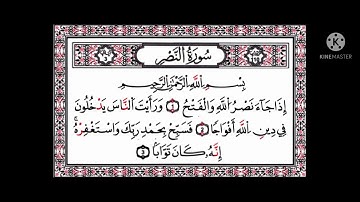 سُورَةُ النَّصْرِ
بِسْمِ اللَّهِ الرَّحْمَٰنِ الرَّحِيمِ
إِذَا جَاءَ نَصْرُ اللَّهِ وَالْفَتْحُ ۝١ وَرَأَيْتَ النَّاسَ يَدْخُلُونَ
فِي دِينِ اللَّهِ أَفْوَاجًا ۝٢ فَسَبِّحْ بِحَمْدِ رَبِّكَ وَاسْتَغْفِرْهُ ۚ
إِنَّهُ كَانَ تَوَّابًا ۝٣
KINEMASTER